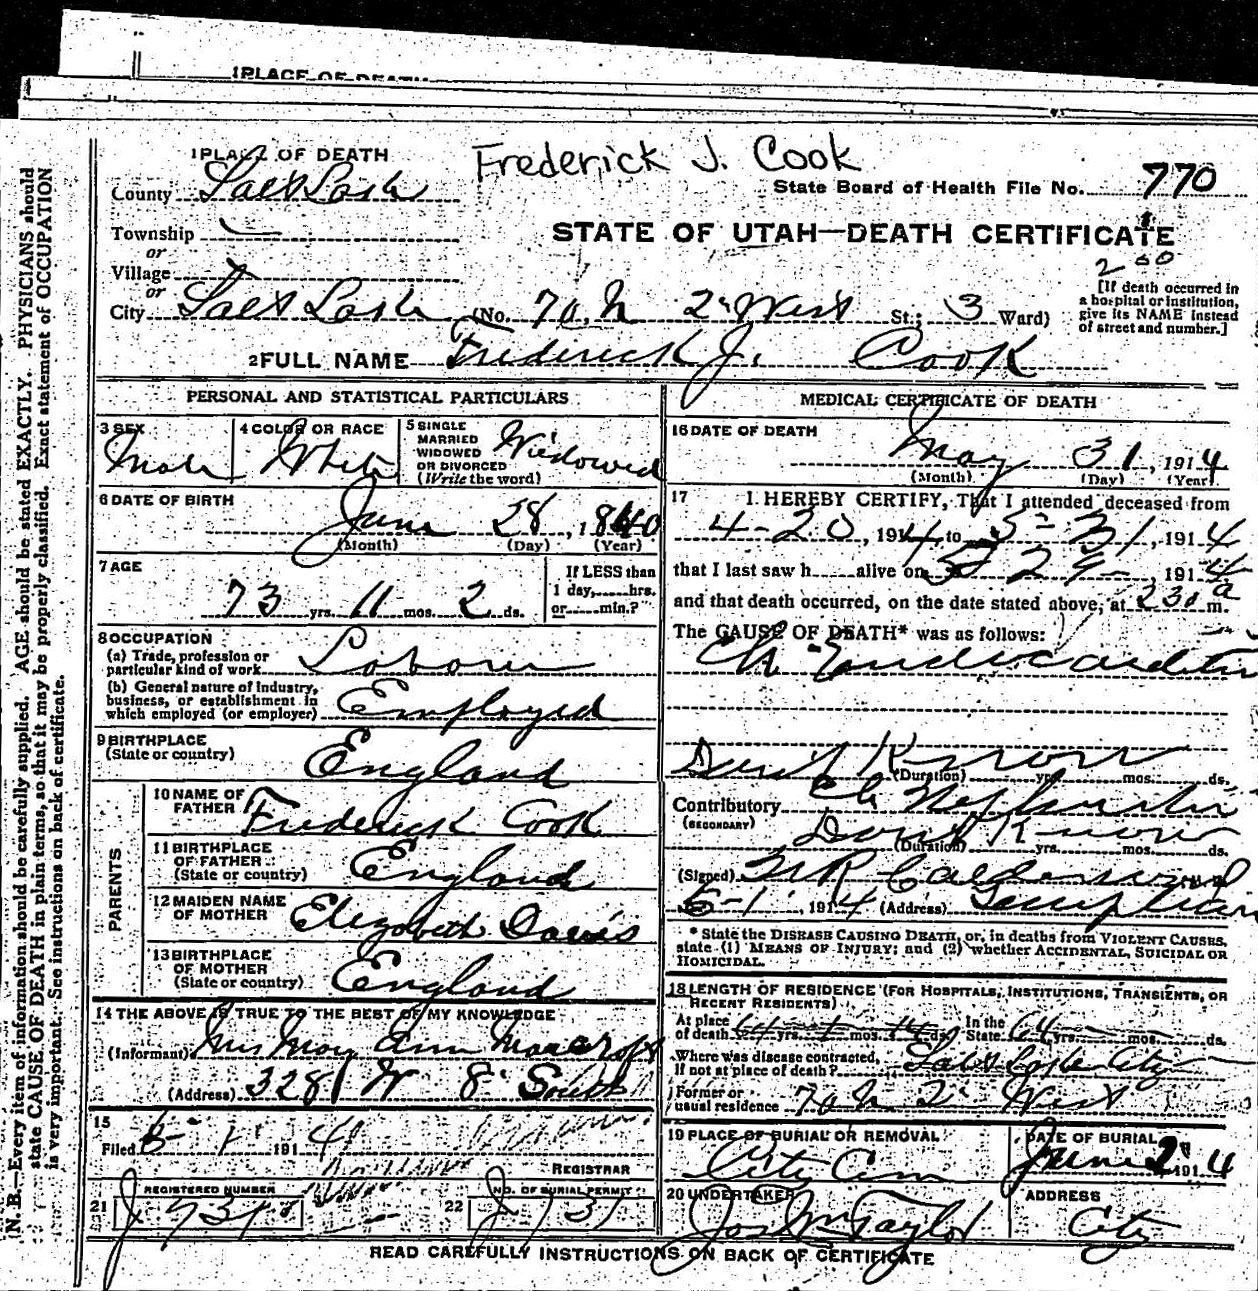 1PLACE OF DEATH
1PLACE OF DEATH
Frederick J. Cook
County Salt Lake
State Board of Health File No. 770
Township
or
STATE OF UTAH—DEATH CERTIFICATE
Village
or
200
City Salt Lake (No. 70 N 2nd West St.; 3 Ward)
[If death occurred in a hospital or institution, give its NAME instead of street and number.]
2FULL NAME Frederick J. Cook
PERSONAL AND STATISTICAL PARTICULARS
3 SEX Male
4 COLOR OR RACE White
5 SINGLE MARRIED WIDOWED OR DIVORCED (Write the word) Widowed
6 DATE OF BIRTH June 28, 1840
(Month) (Day) (Year)
7 AGE 73 yrs. 11 mos. 2 ds.
If LESS than 1 day, hrs. or min.?
8 OCCUPATION
(a) Trade, profession or particular kind of work Laborer
(b) General nature of industry, business, or establishment in which employed (or employer) Employed
9 BIRTHPLACE (State or country) England
PARENTS
10 NAME OF FATHER Frederick Cook
11 BIRTHPLACE OF FATHER (State or country) England
12 MAIDEN NAME OF MOTHER Elizabeth Davis
13 BIRTHPLACE OF MOTHER (State or country) England
14 THE ABOVE IS TRUE TO THE BEST OF MY KNOWLEDGE
(Informant) Mrs May Ann
(Address) 328 W 8 South
15
Filed 6-1 1914
REGISTRAR
21 REGISTERED NUMBER J 731
22 NO. OF BURIAL PERMIT J 731
MEDICAL CERTIFICATE OF DEATH
16 DATE OF DEATH May 31, 1914
(Month) (Day) (Year)
17 I HEREBY CERTIFY, That I attended deceased from
4-20, 1914, to 5-31, 1914
that I last saw h alive on 5 29, 1914
and that death occurred, on the date stated above, at 230 a m.
The CAUSE OF DEATH* was as follows:
Ch Endocarditis
Dont Know (Duration) yrs. mos. ds.
Contributory (SECONDARY) Ch Nephritis
Dont Know (Duration) yrs. mos. ds.
(Signed) Calderwood
6-1, 1914 (Address) Templeton
* State the DISEASE CAUSING DEATH, or, in deaths from VIOLENT CAUSES, state (1) MEANS OF INJURY; and (2) whether ACCIDENTAL, SUICIDAL OR HOMICIDAL.
18 LENGTH OF RESIDENCE (FOR HOSPITALS, INSTITUTIONS, TRANSIENTS, OR RECENT RESIDENTS)
At place of death 64 yrs. mos. ds. In the State 64 yrs. mos. ds.
Where was disease contracted, if not at place of death? Salt Lake City
Former or usual residence 70 N 2 West
19 PLACE OF BURIAL OR REMOVAL City Cem
DATE OF BURIAL June 2 1914
20 UNDERTAKER Jos Wm Taylor
ADDRESS City
READ CAREFULLY INSTRUCTIONS ON BACK OF CERTIFICATE
N. B.—Every item of information should be carefully supplied. AGE should be stated EXACTLY. PHYSICIANS should
state CAUSE OF DEATH in plain terms, so that it may be properly classified. Exact statement of OCCUPATION
is very important. See instructions on back of certificate.